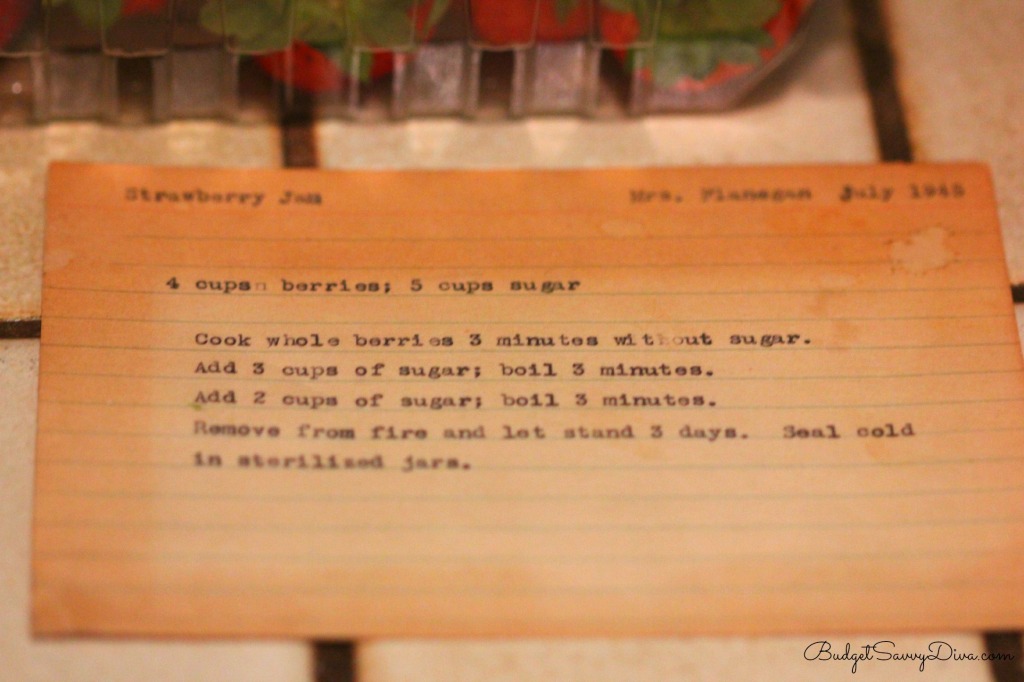 Strawberry Jam Mrs. Flanegan July 1945
4 cups berries; 5 cups sugar
Cook whole berries 3 minutes without sugar.
Add 3 cups of sugar; boil 3 minutes.
Add 2 cups of sugar; boil 3 minutes.
Remove from fire and let stand 3 days. Seal cold
in sterilized jars.
BudgetSavvyDiva.com